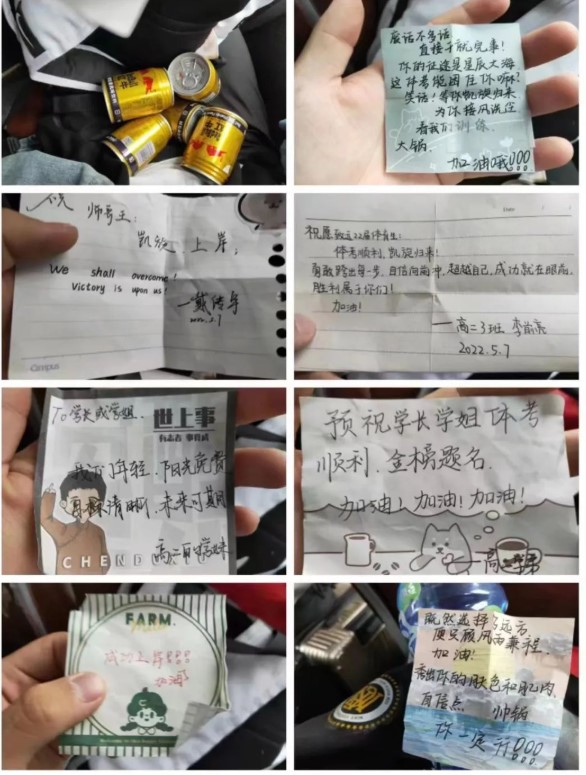 废话不多话
直接干就完事!
你的征途是星辰大海
这体考能困住你嘛?
笑话!等你凯旋归来
为你接风洗尘
看我们训练.
大锅.
加油哦!!!
祝
帅哥王:
凯旋,上岸,
We shall overcome!
Victory is upon us!
Campus
祝愿致远22届体育生:
体考顺利,凯旋归来!
勇敢踏出每一步,自信向前冲,超越自己,成功就在眼前,
胜利属于你们!
加油!
——高二3班 李
2022.5.7
To学长或学姐.
世上事
有志者 事竟成
我们年轻.阳光
目标清晰.未来可期
CHEND
预祝学长学姐体考
顺利.金榜题名.
加油!加油!加油!
FARM
成功上岸!!!
加油
既然选择了远方.
便只顾风雨兼程.
加油!
秀出你的肤色和肌肉
自信点 帅锅
你一定行!!!